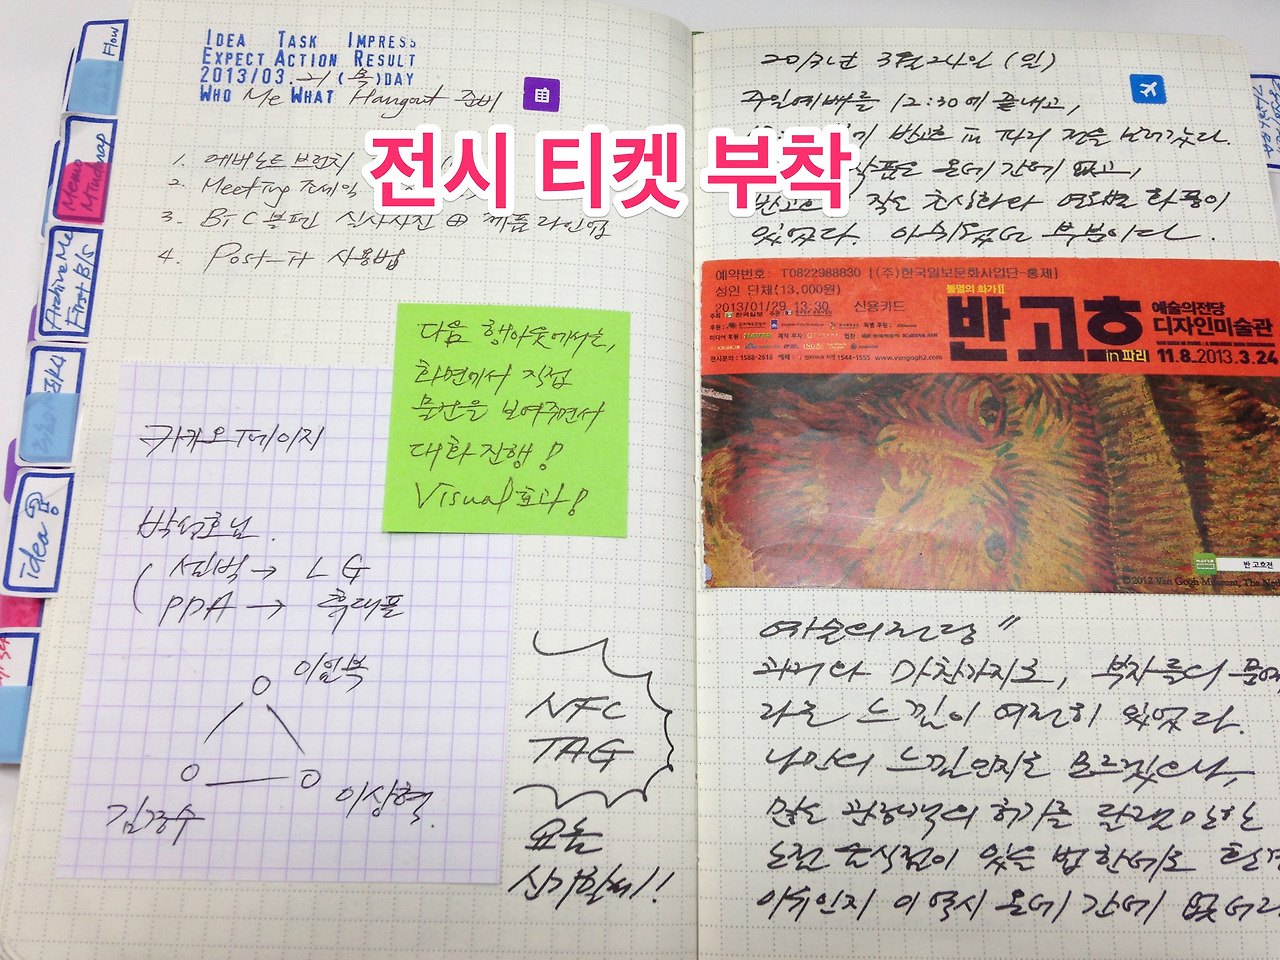 전시 티켓 부착
Flow
Memo
Mindmap
ArchiveMe
First B/S
idea
IDEA TASK IMPRESS
EXPECT ACTION RESULT
2013/03.21 (목)DAY
WHO Me WHAT Hangout 준비
1. 에버노트 브런치
2. Meeting
3. BIC볼펜 실사사진 ⊕ 제품 라인업
4. Post-it 사용법
다음 행아웃에서는,
화면에서 직접
문반을 보여주면서
대화 진행!
Visual 효과!
카카오페이지
박성호님.
셀빅 → LG
PDA → 휴대폰
이일복
김경수
이상혁.
NFC
TAG
요놈
신기할세!!
2013년 3월 24일 (일)
주일예배를 12:30에 끝내고,
반고흐 in 파리 전을 보러갔다.
작품은 온데 간데 없고,
반고흐의 작은 초상화와 연대별 화풍이
있었다. 아쉬웠던 부분이다.
예약번호: T0822988830 [(주)한국일보문화사업단-홍제]
성인 단체(13,000원)
2013/01/29 13:30 신용카드
불멸의 화가II
반고흐
in 파리
예술의전당
디자인미술관
11.8-2013.3.24
전시문의 : 1588-2618
1544-1555 www.vangogh2.com
NAVER
반 고흐전
© 2012 Van Gogh Museum, The Ne
예술의전당"
과거와 마찬가지로, 부자들의 문
라는 느낌이 여전히 있었다.
나만의 느낌인지도 모르겠으나,
많은 관람객의 허기를 달랠만한
는 음식점이 있을 법 한데도
아쉬인지 이 역시 온데 간데 없더라